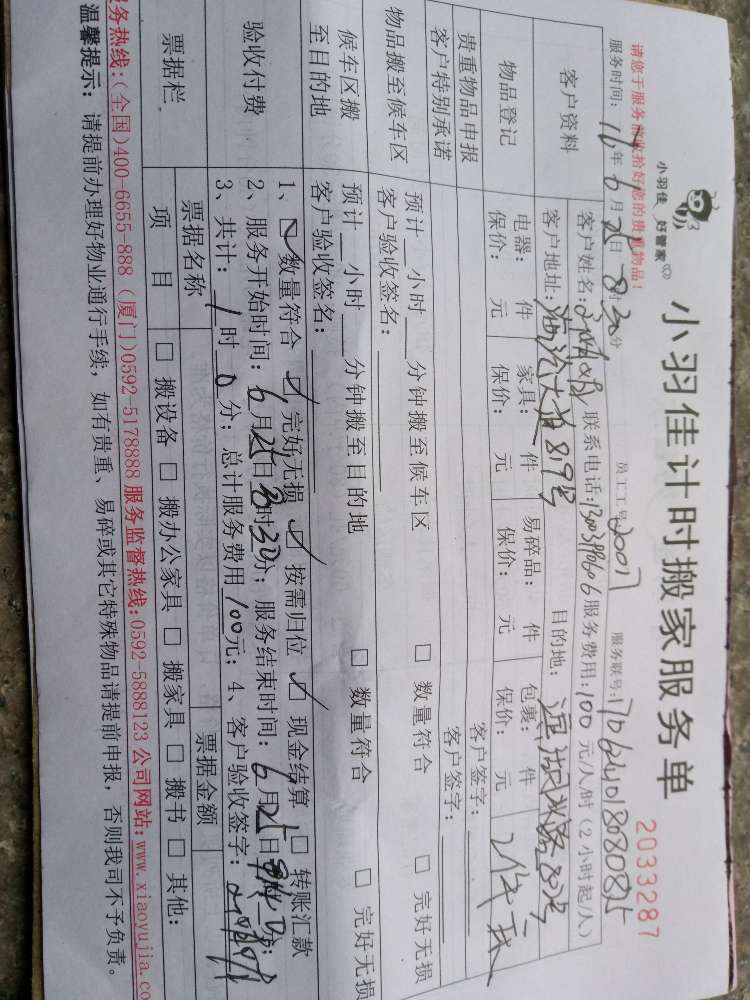 小羽佳
好管家
小羽佳计时搬家服务单
2033287
请您于服务前收拾好您的贵重物品!
服务时间: 年6月25日8时30分 员工工号: 服务联号:
客户资料
客户姓名: 联系电话: 服务费用:100元/人/时(2小时起/人)
客户地址: 89号 目的地:
物品登记
电器: 件 家具: 件 易碎品: 件 包裹: 件
保价: 元 保价: 元 保价: 元 保价: 元
贵重物品申报 客户签字:
客户特别承诺 客户签字:
物品搬至候车区
预计__小时__分钟搬至候车区 □ 数量符合 □ 完好无损
客户验收签名:
候车区搬至目的地
预计__小时__分钟搬至目的地 □ 数量符合 □ 完好无损
客户验收签名:
验收付费
1、☑ 数量符合 ☑ 完好无损 ☑ 按需归位 ☑ 现金结算 □ 转账汇款
2、服务开始时间:6月25日 时30分;服务结束时间:6月25日
3、共计:1时0分;总计服务费用100元;4、客户验收签字:
票据栏
票据名称 票据金额
项目 □ 搬设备 □ 搬办公家具 □ 搬家具 □ 搬书 □ 其他:
服务热线:(全国)400-6655-888 (厦门)0592-5178888 服务监督热线:0592-5888123 公司网站:www.xiaoyujia.co
温馨提示: 请提前办理好物业通行手续, 如有贵重、易碎或其它特殊物品请提前申报, 否则我司不予负责。